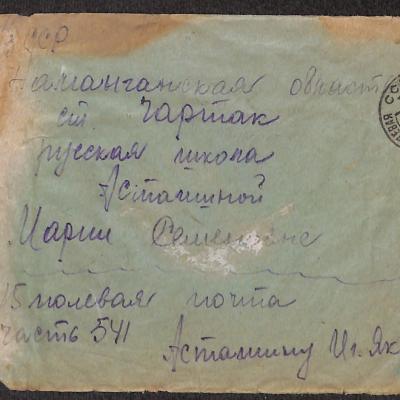 ССР
Наманганская область
ст. Чартак
русская школа
Асташиной
Марии Семеновне
15 полевая почта
часть 541
Асташину Иг. Як